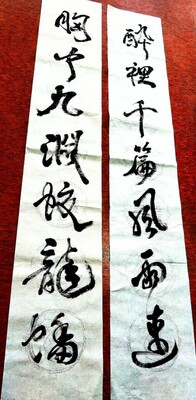 醉裡千篇風雨速
胸中九淵蛟龍蟠